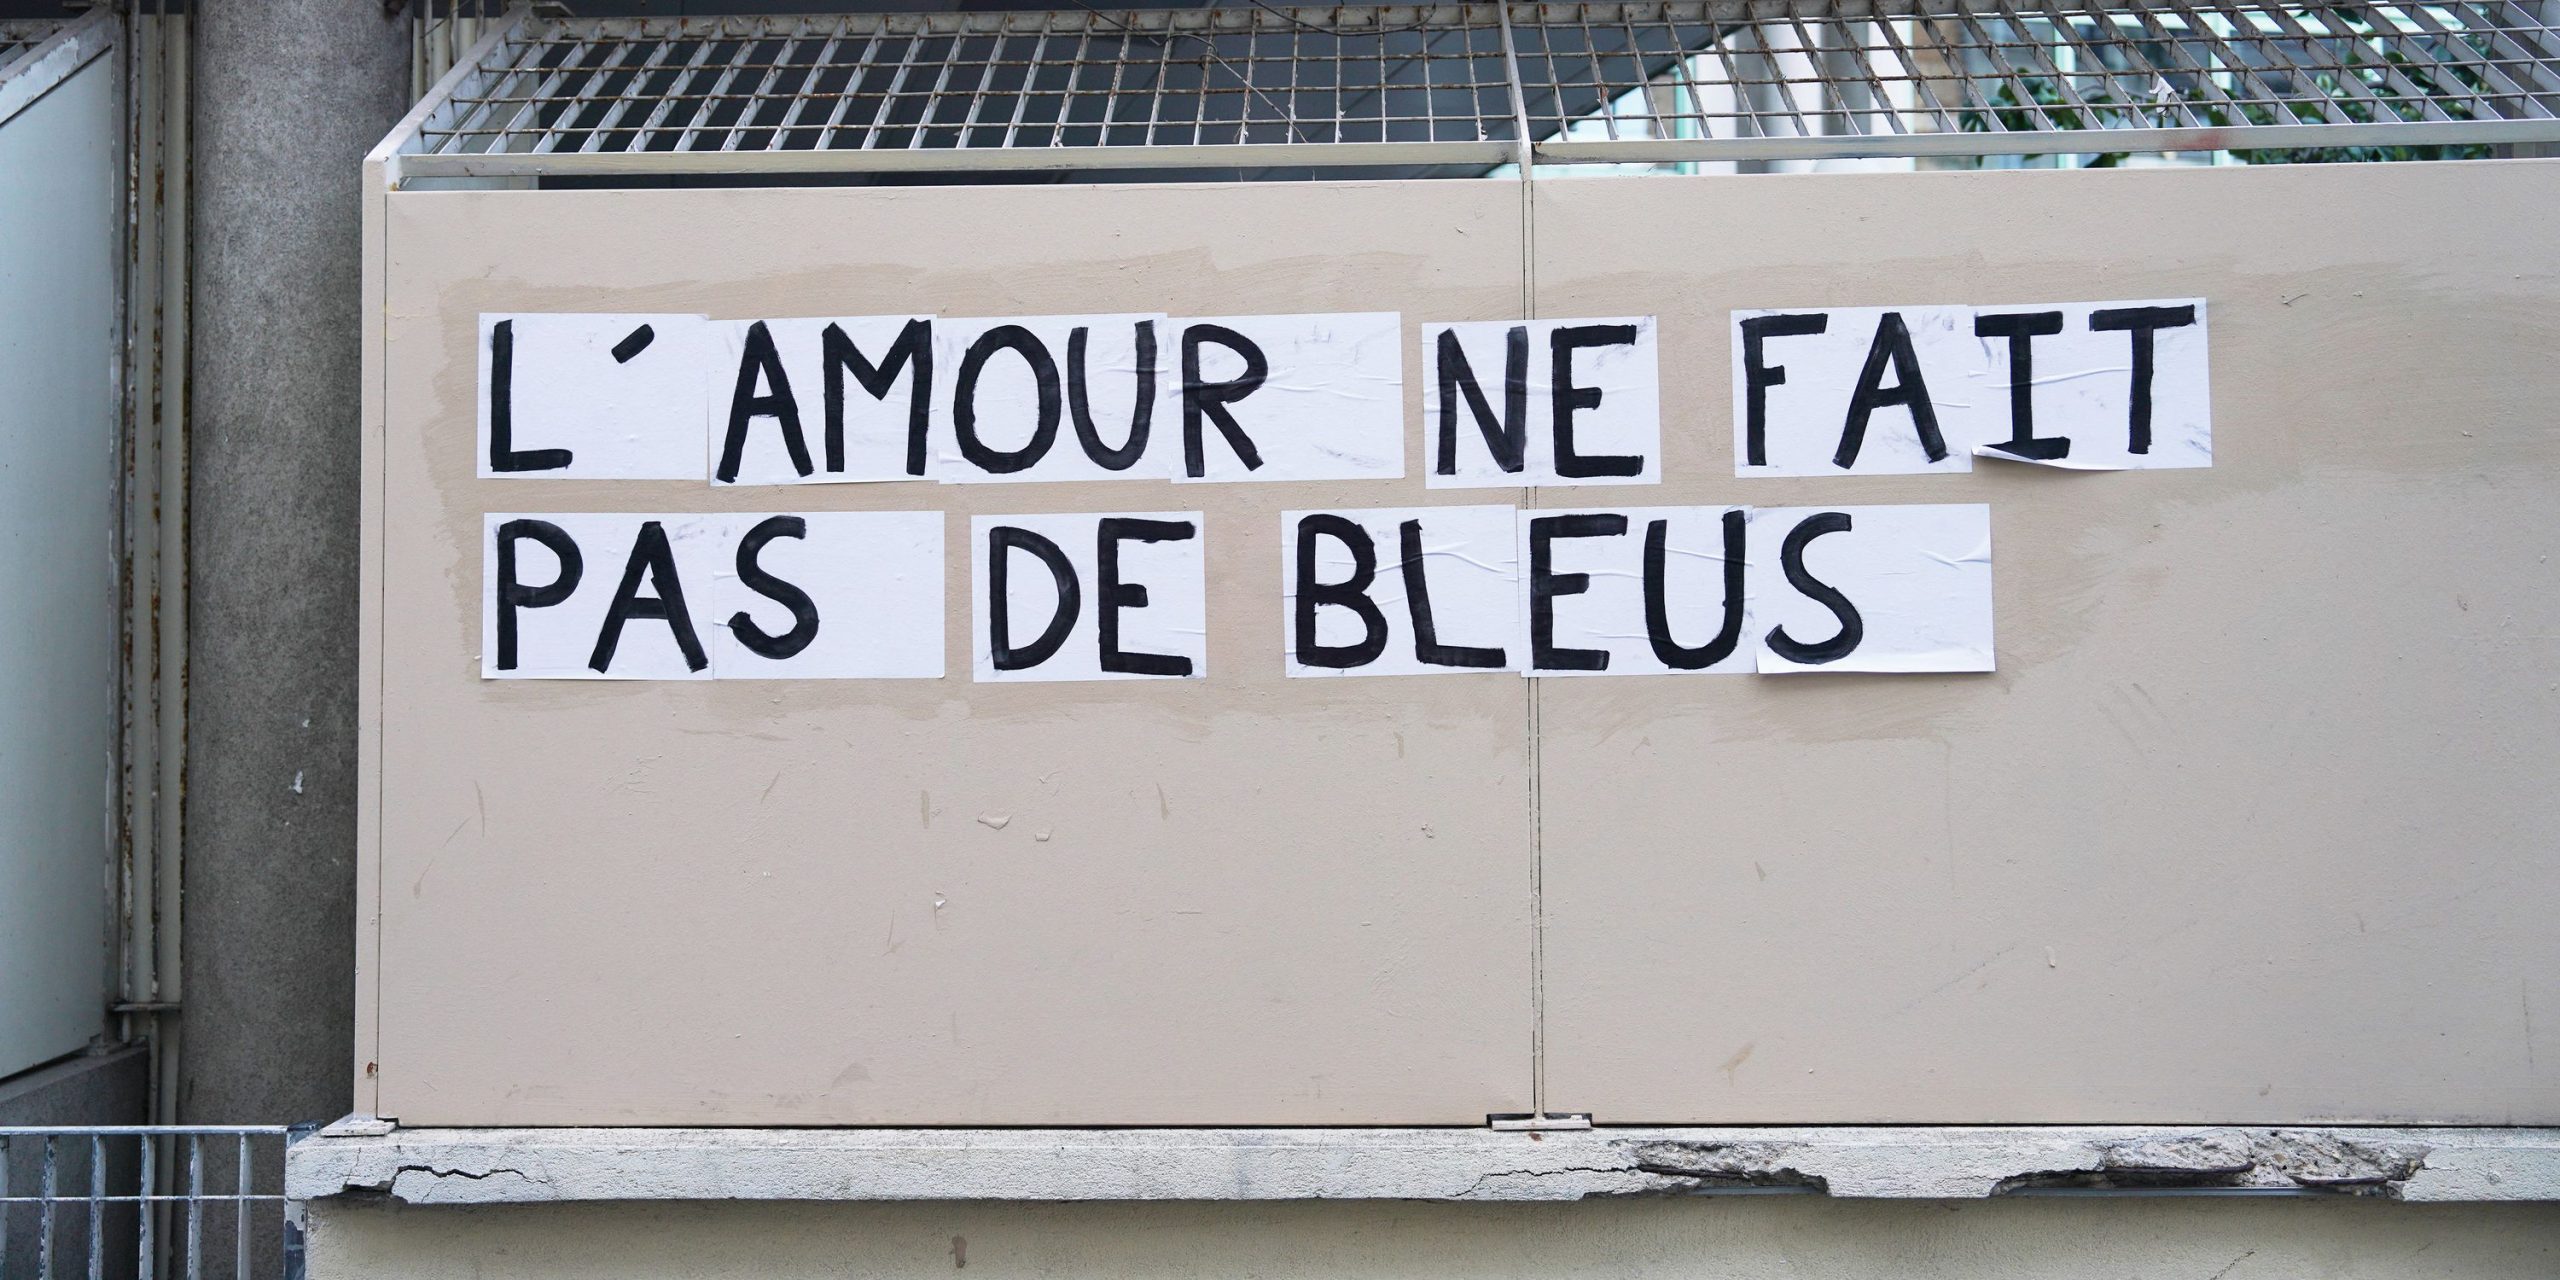 L´AMOUR NE FAIT
PAS DE BLEUS